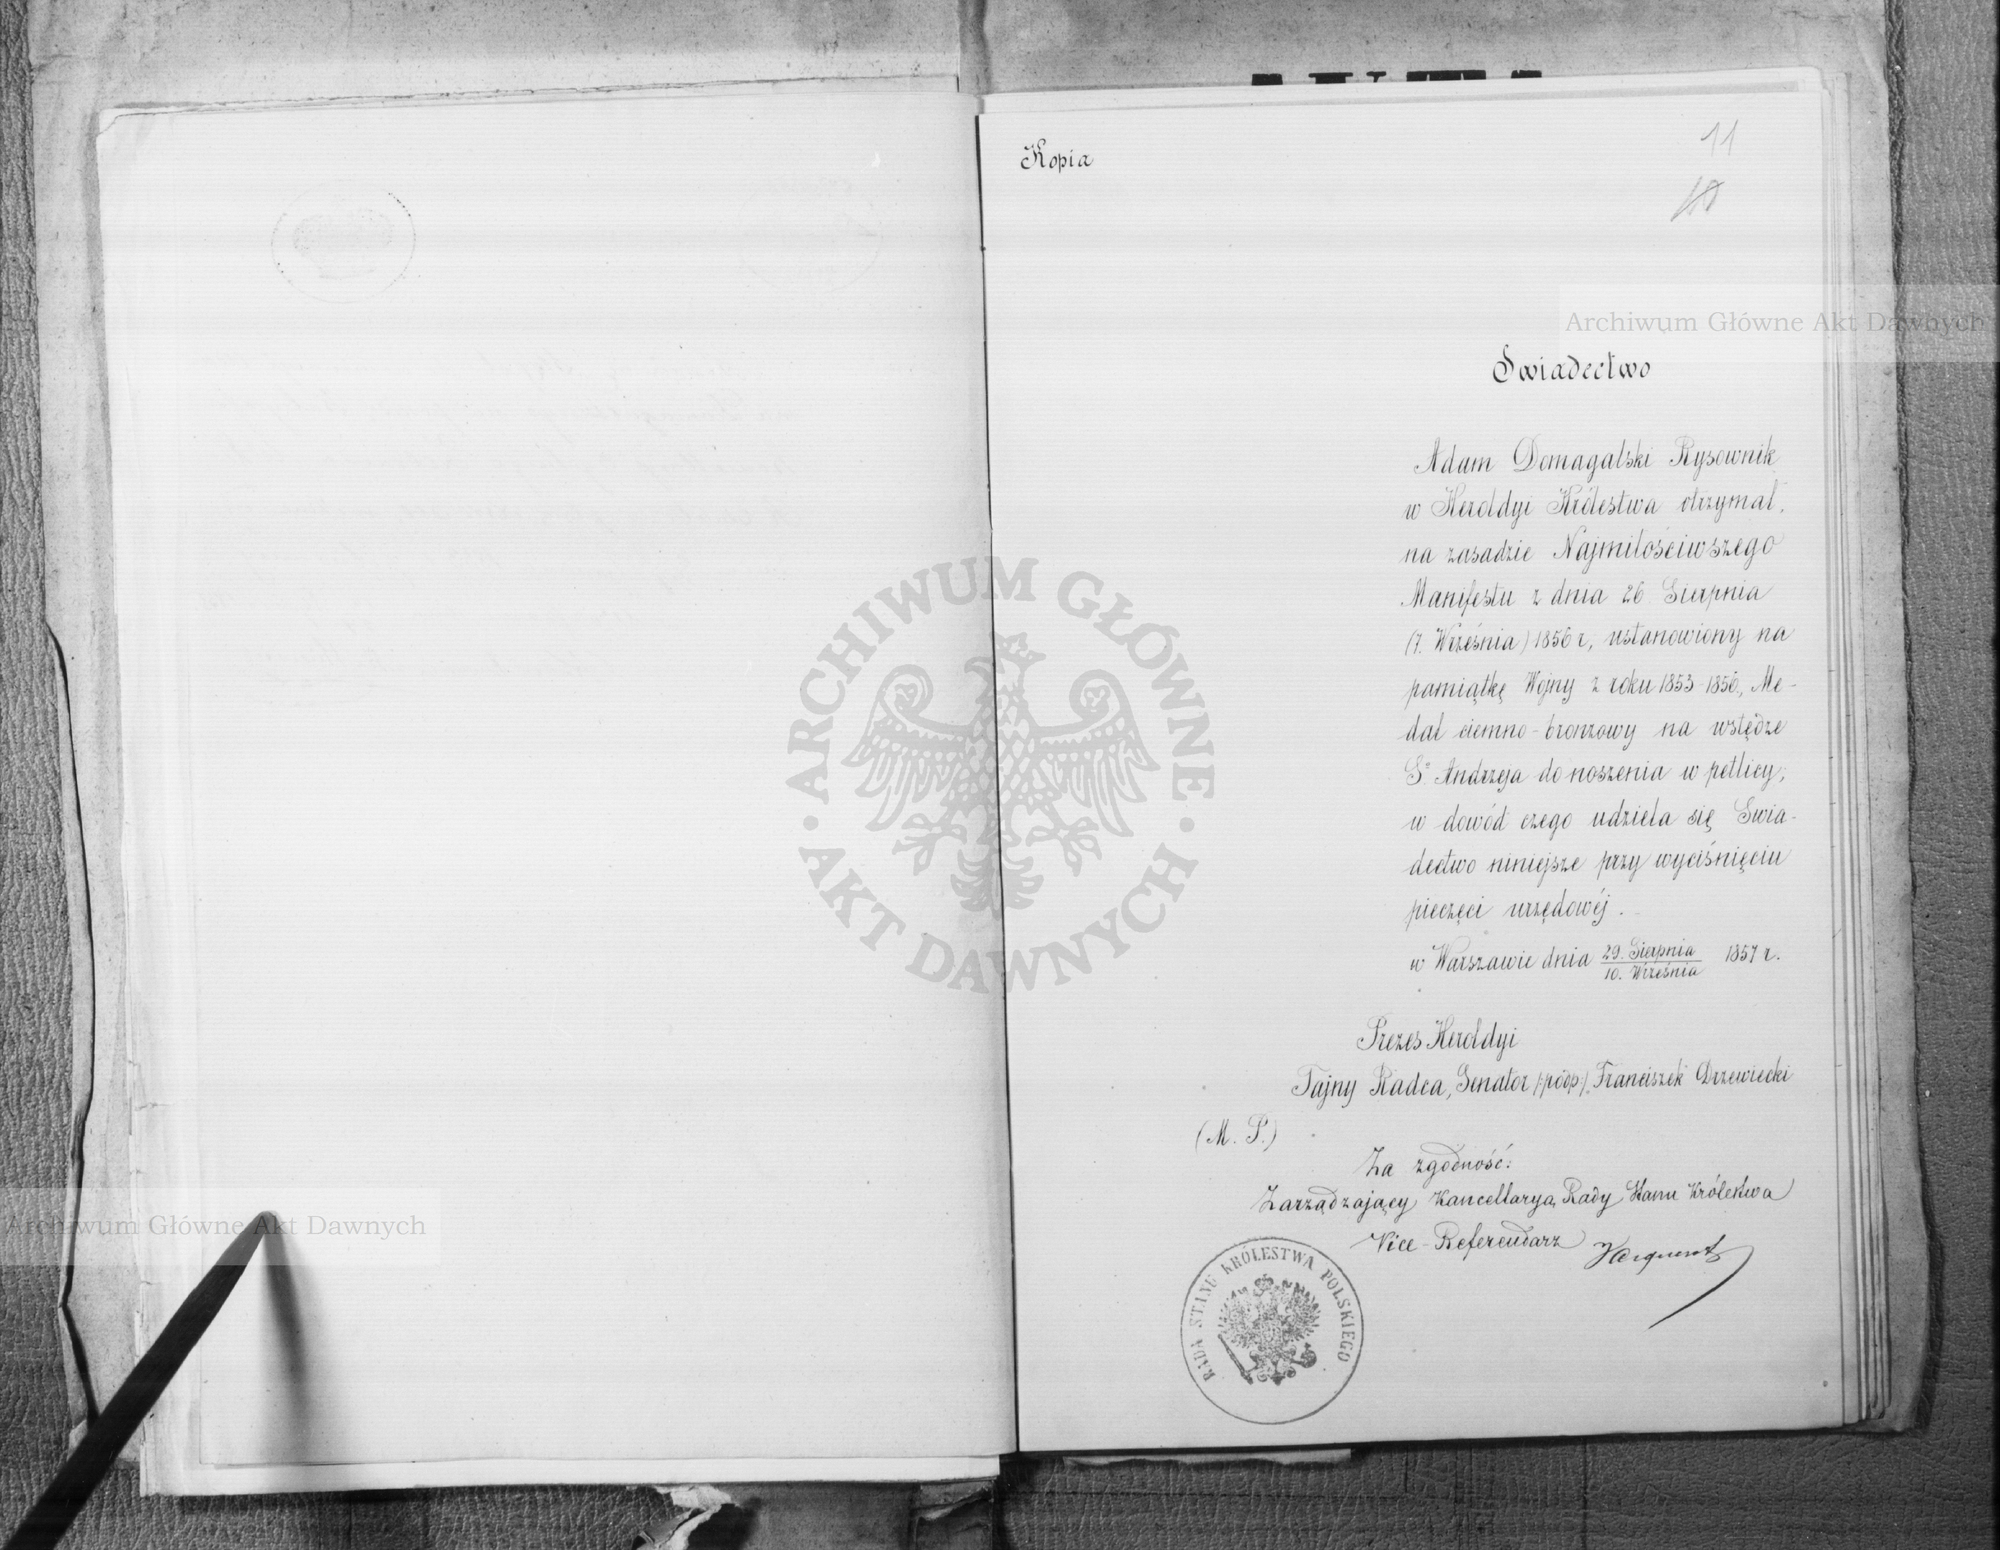 Kopia
11
Archiwum Główne Akt Dawnych
Świadectwo
Adam Domagalski Rysownik
w Heroldyi Królestwa otrzymał,
na zasadzie Najmiłościwszego
Manifestu z dnia 26 Sierpnia
(7. Września) 1856 r, ustanowiony na
pamiątkę Wojny z roku 1853-1856, Me-
dal ciemno-bronzowy na wstędze
Sº Andrzeja do noszenia w petlicy;
w dowód czego udziela się Świa-
dectwo niniejsze przy wyciśnięciu
pieczęci urzędowéj.
w Warszawie dnia 29. Sierpnia / 10. Września 1857 r.
Prezes Heroldyi
Tajny Radca, Senator /:podp:/ Franciszek Drzewiecki
(M. P.)
Za zgodność:
Zarządzający Kancellaryą Rady Stanu Królestwa
Vice-Referendarz
RADA STANU KRÓLESTWA POLSKIEGO
ARCHIWUM GŁÓWNE
AKT DAWNYCH
Archiwum Główne Akt Dawnych